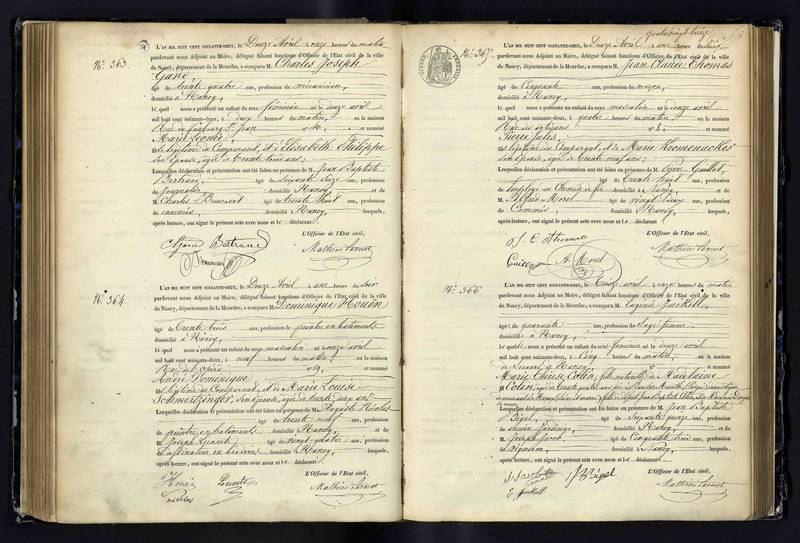 No. 363.
L'AN MIL HUIT CENT SOIXANTE-DEUX, le Douze Avril à onze heures du matin
pardevant nous Adjoint au Maire, délégué faisant fonctions d'Officier de l'Etat civil de la ville
de Nancy, département de la Meurthe, a comparu M. Charles Joseph
Gand
âgé de trente quatre ans, profession de mécanicien,
domicilié à Nancy,
lequel nous a présenté un enfant du sexe féminin né le douze avril
mil huit cent soixante-deux, à deux heures du matin, en la maison
Rue du faubourg St Jean no 40, et nommé
Marie
légitime du Comparant, et d'Elisabeth Philippe
son Epouse, âgée de Trente ans;
Lesquelles déclaration et présentation ont été faites en présence de M. Jean Baptiste
Bertrand, âgé de soixante Seize ans, profession
de Journalier, domicilié à Nancy et de
M. Charles âgé de trente huit ans, profession
de commis, domicilié à Nancy, lesquels,
après lecture, ont signé le présent acte avec nous et le déclarant
L'Officier de l'Etat civil,
Bertrand
No. 364.
L'AN MIL HUIT CENT SOIXANTE-DEUX, le Douze Avril à une heure du soir
pardevant nous Adjoint au Maire, délégué faisant fonctions d'Officier de l'Etat civil de la ville
de Nancy, département de la Meurthe, a comparu M. Dominique Houin
âgé de trente trois ans, profession de peintre en bâtiments
domicilié à Nancy,
lequel nous a présenté un enfant du sexe masculin né le onze avril
mil huit cent soixante-deux, à neuf heures du matin, en la maison
no 19, et nommé
André Dominique
légitime du Comparant, et de Marie Louise
Schmertzinger, son Epouse, âgée de trente deux ans.
Lesquelles déclaration et présentation ont été faites en présence de M. Auguste Nicolas
âgé de trente neuf ans, profession
de peintre en bâtiments domicilié à Nancy et de
M. Joseph Lecomte âgé de vingt quatre ans, profession
de dessinateur en broderies domicilié à Nancy, lesquels,
après lecture, ont signé le présent acte avec nous et le déclarant
L'Officier de l'Etat civil,
Houin Lecomte
Nicolas
No. 365.
L'AN MIL HUIT CENT SOIXANTE-DEUX, le Douze Avril à une heure du soir
pardevant nous Adjoint au Maire, délégué faisant fonctions d'Officier de l'Etat civil de la ville
de Nancy, département de la Meurthe, a comparu M. Jean Claude Thomas
âgé de Cinquante ans, profession de maçon,
domicilié à Nancy,
lequel nous a présenté un enfant du sexe masculin né le onze avril
mil huit cent soixante-deux, à quatre heures du matin, en la maison
Rue des artisans no 5, et nommé
Pierre Jules,
légitime du Comparant, et de Marie
son Epouse, âgée de trente neuf ans;
Lesquelles déclaration et présentation ont été faites en présence de M.
âgé de trente huit ans, profession
d'employé au Chemin de fer domicilié à Nancy et de
M. Morel âgé de vingt deux ans, profession
de Commis, domicilié à Nancy, lesquels,
après lecture, ont signé le présent acte avec nous et le déclarant
L'Officier de l'Etat civil,
A. Morel
No. 366.
L'AN MIL HUIT CENT SOIXANTE-DEUX, le Treize avril à onze heures du matin
pardevant nous Adjoint au Maire, délégué faisant fonctions d'Officier de l'Etat civil de la ville
de Nancy, département de la Meurthe, a comparu M. Eugénie Jackell,
âgée de quarante ans, profession de Sage femme,
domiciliée à Nancy,
laquelle nous a présenté un enfant du sexe féminin né le douze avril
mil huit cent soixante-deux, à Cinq heures du matin, en la maison
de Secours, à Nancy et nommé
Marie Thérèse Cotin, fille naturelle de Madelaine
Cotin, âgée de trente quatre ans
Lesquelles déclaration et présentation ont été faites en présence de M. Jean Baptiste
Bigel, âgé de soixante quinze ans, profession
d'ancien Jardinier, domicilié à Nancy et de
M. Joseph Jacob, âgé de Cinquante trois ans, profession
de Vigneron, domicilié à Nancy, lesquels,
après lecture, ont signé le présent acte avec nous et le déclarant
L'Officier de l'Etat civil,
J. Jacob J B Bigel
E Jackell